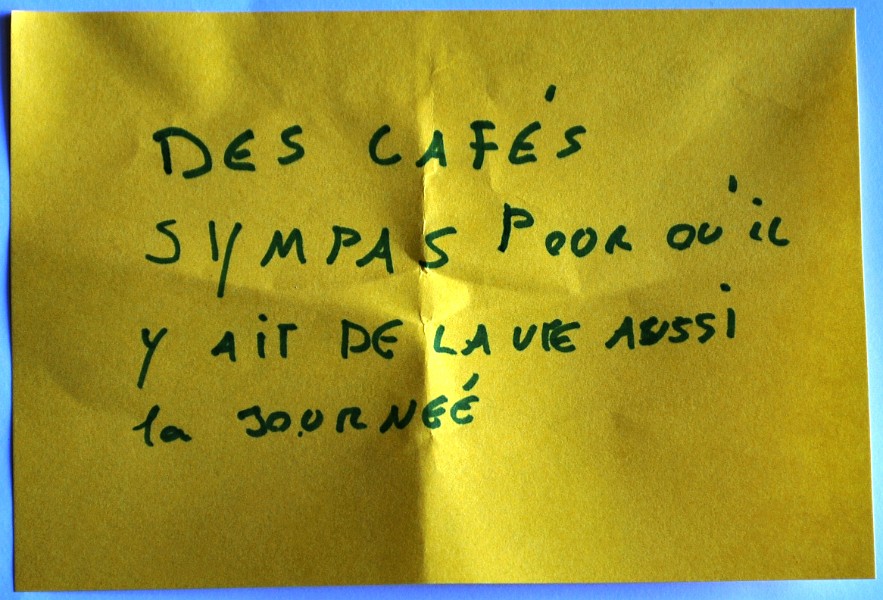 DES CAFÉS
SYMPAS POUR QU'iL
Y AiT DE LA VIE AUSSi
la JOURNEÉ